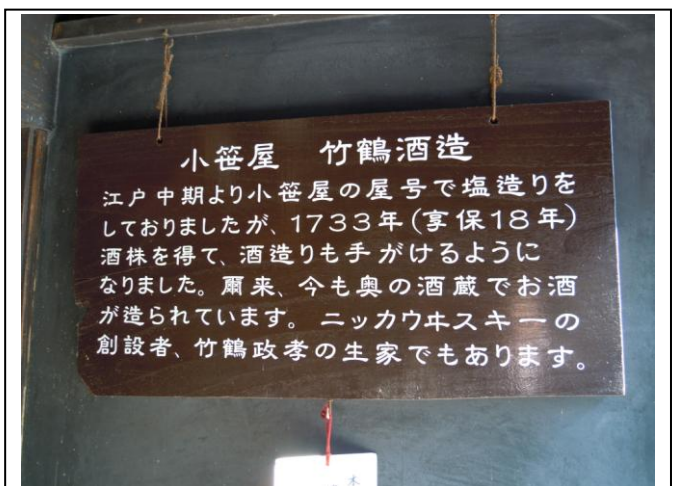 小笹屋　竹鶴酒造
江戸中期より小笹屋の屋号で塩造りを
しておりましたが、1733年(享保18年)
酒株を得て、酒造りも手がけるように
なりました。爾来、今も奥の酒蔵でお酒
が造られています。ニッカウヰスキーの
創設者、竹鶴政孝の生家でもあります。